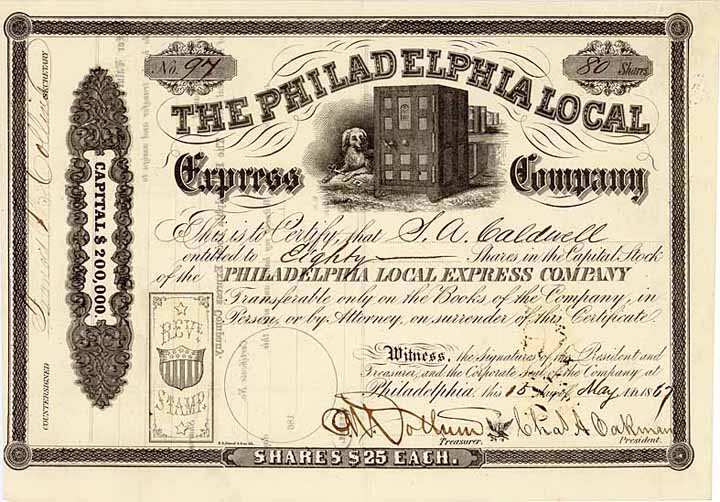 No. 97
80 Shares
THE PHILADELPHIA LOCAL
Express Company
This is to Certify, that S. A. Caldwell
entitled to Eighty Shares in the Capital Stock
of the PHILADELPHIA LOCAL EXPRESS COMPANY
Transferable only on the Books of the Company, in
Person, or by Attorney, on surrender of this Certificate.
Witness, the signatures of the President and
Treasurer, and the Corporate Seal, of the Company at
Philadelphia, this 15 day of May A.D. 1867
Treasurer.
Chas A Oakman
President.
SHARES $25 EACH.
CAPITAL $200,000.
COUNTERSIGNED
SECRETARY
REV.
STAMP